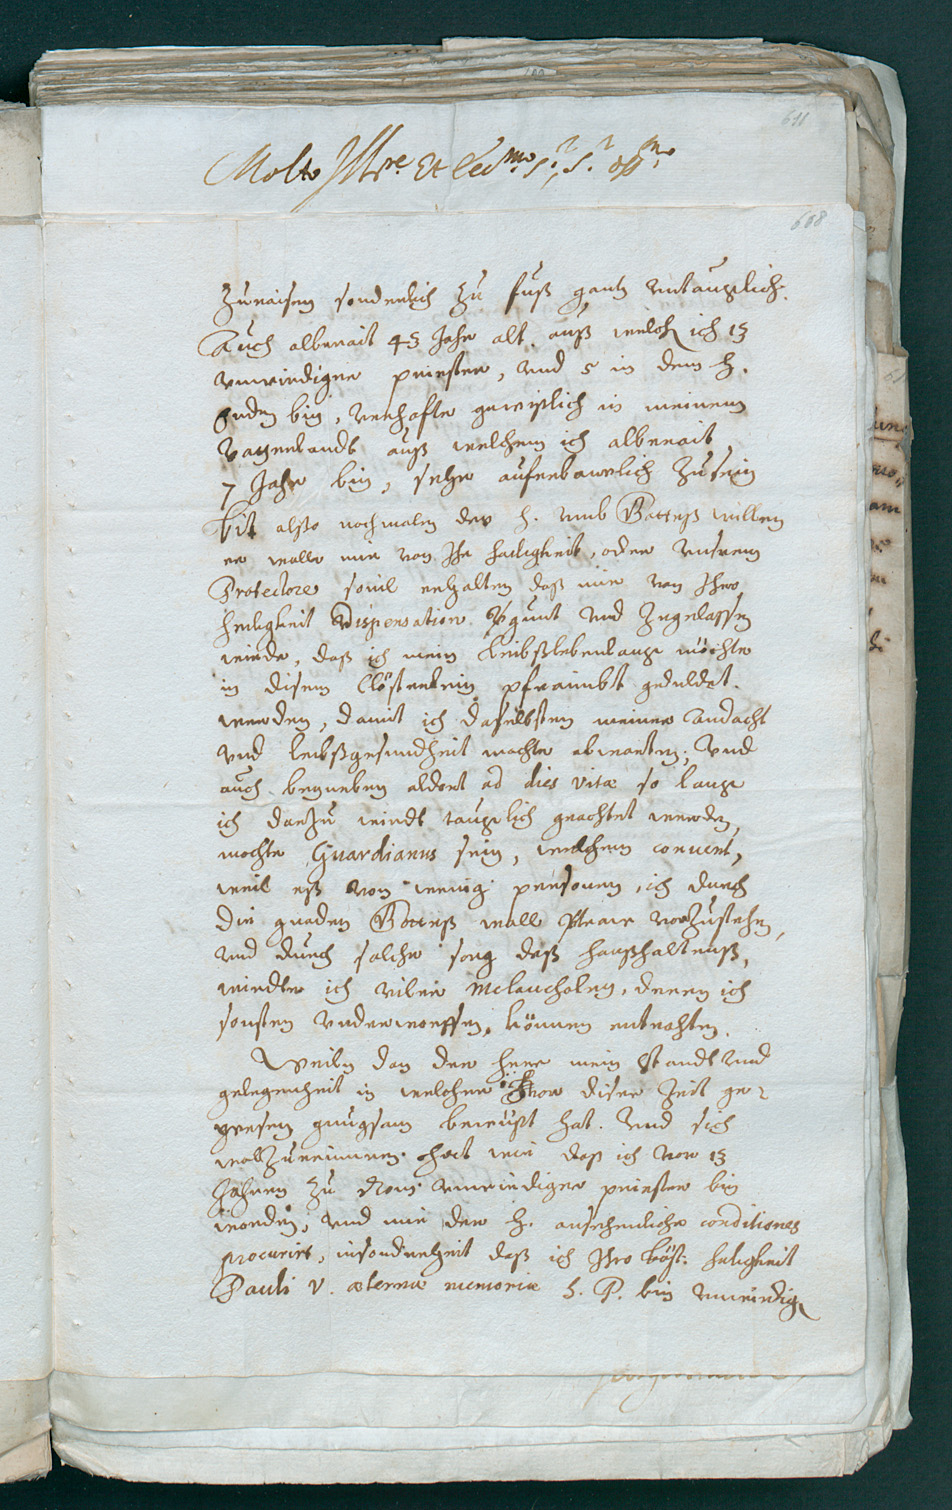 611
Molto Ill.re Et Ecc.mo S.r, S.r
668
Zuraisen sonderlich zu fuß gantz vntauglich.
Auch alberait 43 Jahr alt. auß welch ich 13
vnwirdiger priester, vnd 5 in dem h.
Orden bin, verhoffte gewißlich in meinem
Vatterlandt auß welchem ich alberait
7 Jahr bin, sehr auferbawlich zu sein
bit also nochmalen der h. vmb Gottes willen
er wolle mir von Ihr heiligkeit, oder vnserm
Protectore souil erhalten daß mir von Ihro
heiligkeit dispensation vnd zugelassen
wirde, daß ich mein leibßlebenlang möchte
in disem Clösterlein pfraimbt geduldet
werden, damit ich daselbsten meiner andacht
vnd leibßgesundheit möchte abwarten, Vnd
auch begneben aldort ad dies vitæ so lang
ich darzu wirdt tauglich geachtet werden,
möchte Guardianus sein, welchem conuent,
weil eß von wenig personen, ich durch
die gnaden Gottes woll vorzustehn,
vnd durch solche sorg deß haußhaltenß,
wirdte ich viler Melancholey, deren ich
sonsten vnderworffen, können entrahten.
Weiln dan der herr mein standt vnd
gelegenheit in welcher Ihro diser Zeit ge-
wesen gnugsam bewußt hat. Vnd sich
woll zuerinnern hat wie daß ich vor 13
Jahren zu Rom vnwirdiger priester bin
worden, vnd mir der h. ansehenliche conditiones
procurirt, insonderheit daß ich Ihro bäpst: heiligkeit
Pauli V. æternæ memoriæ h. P. bin vnwirdig